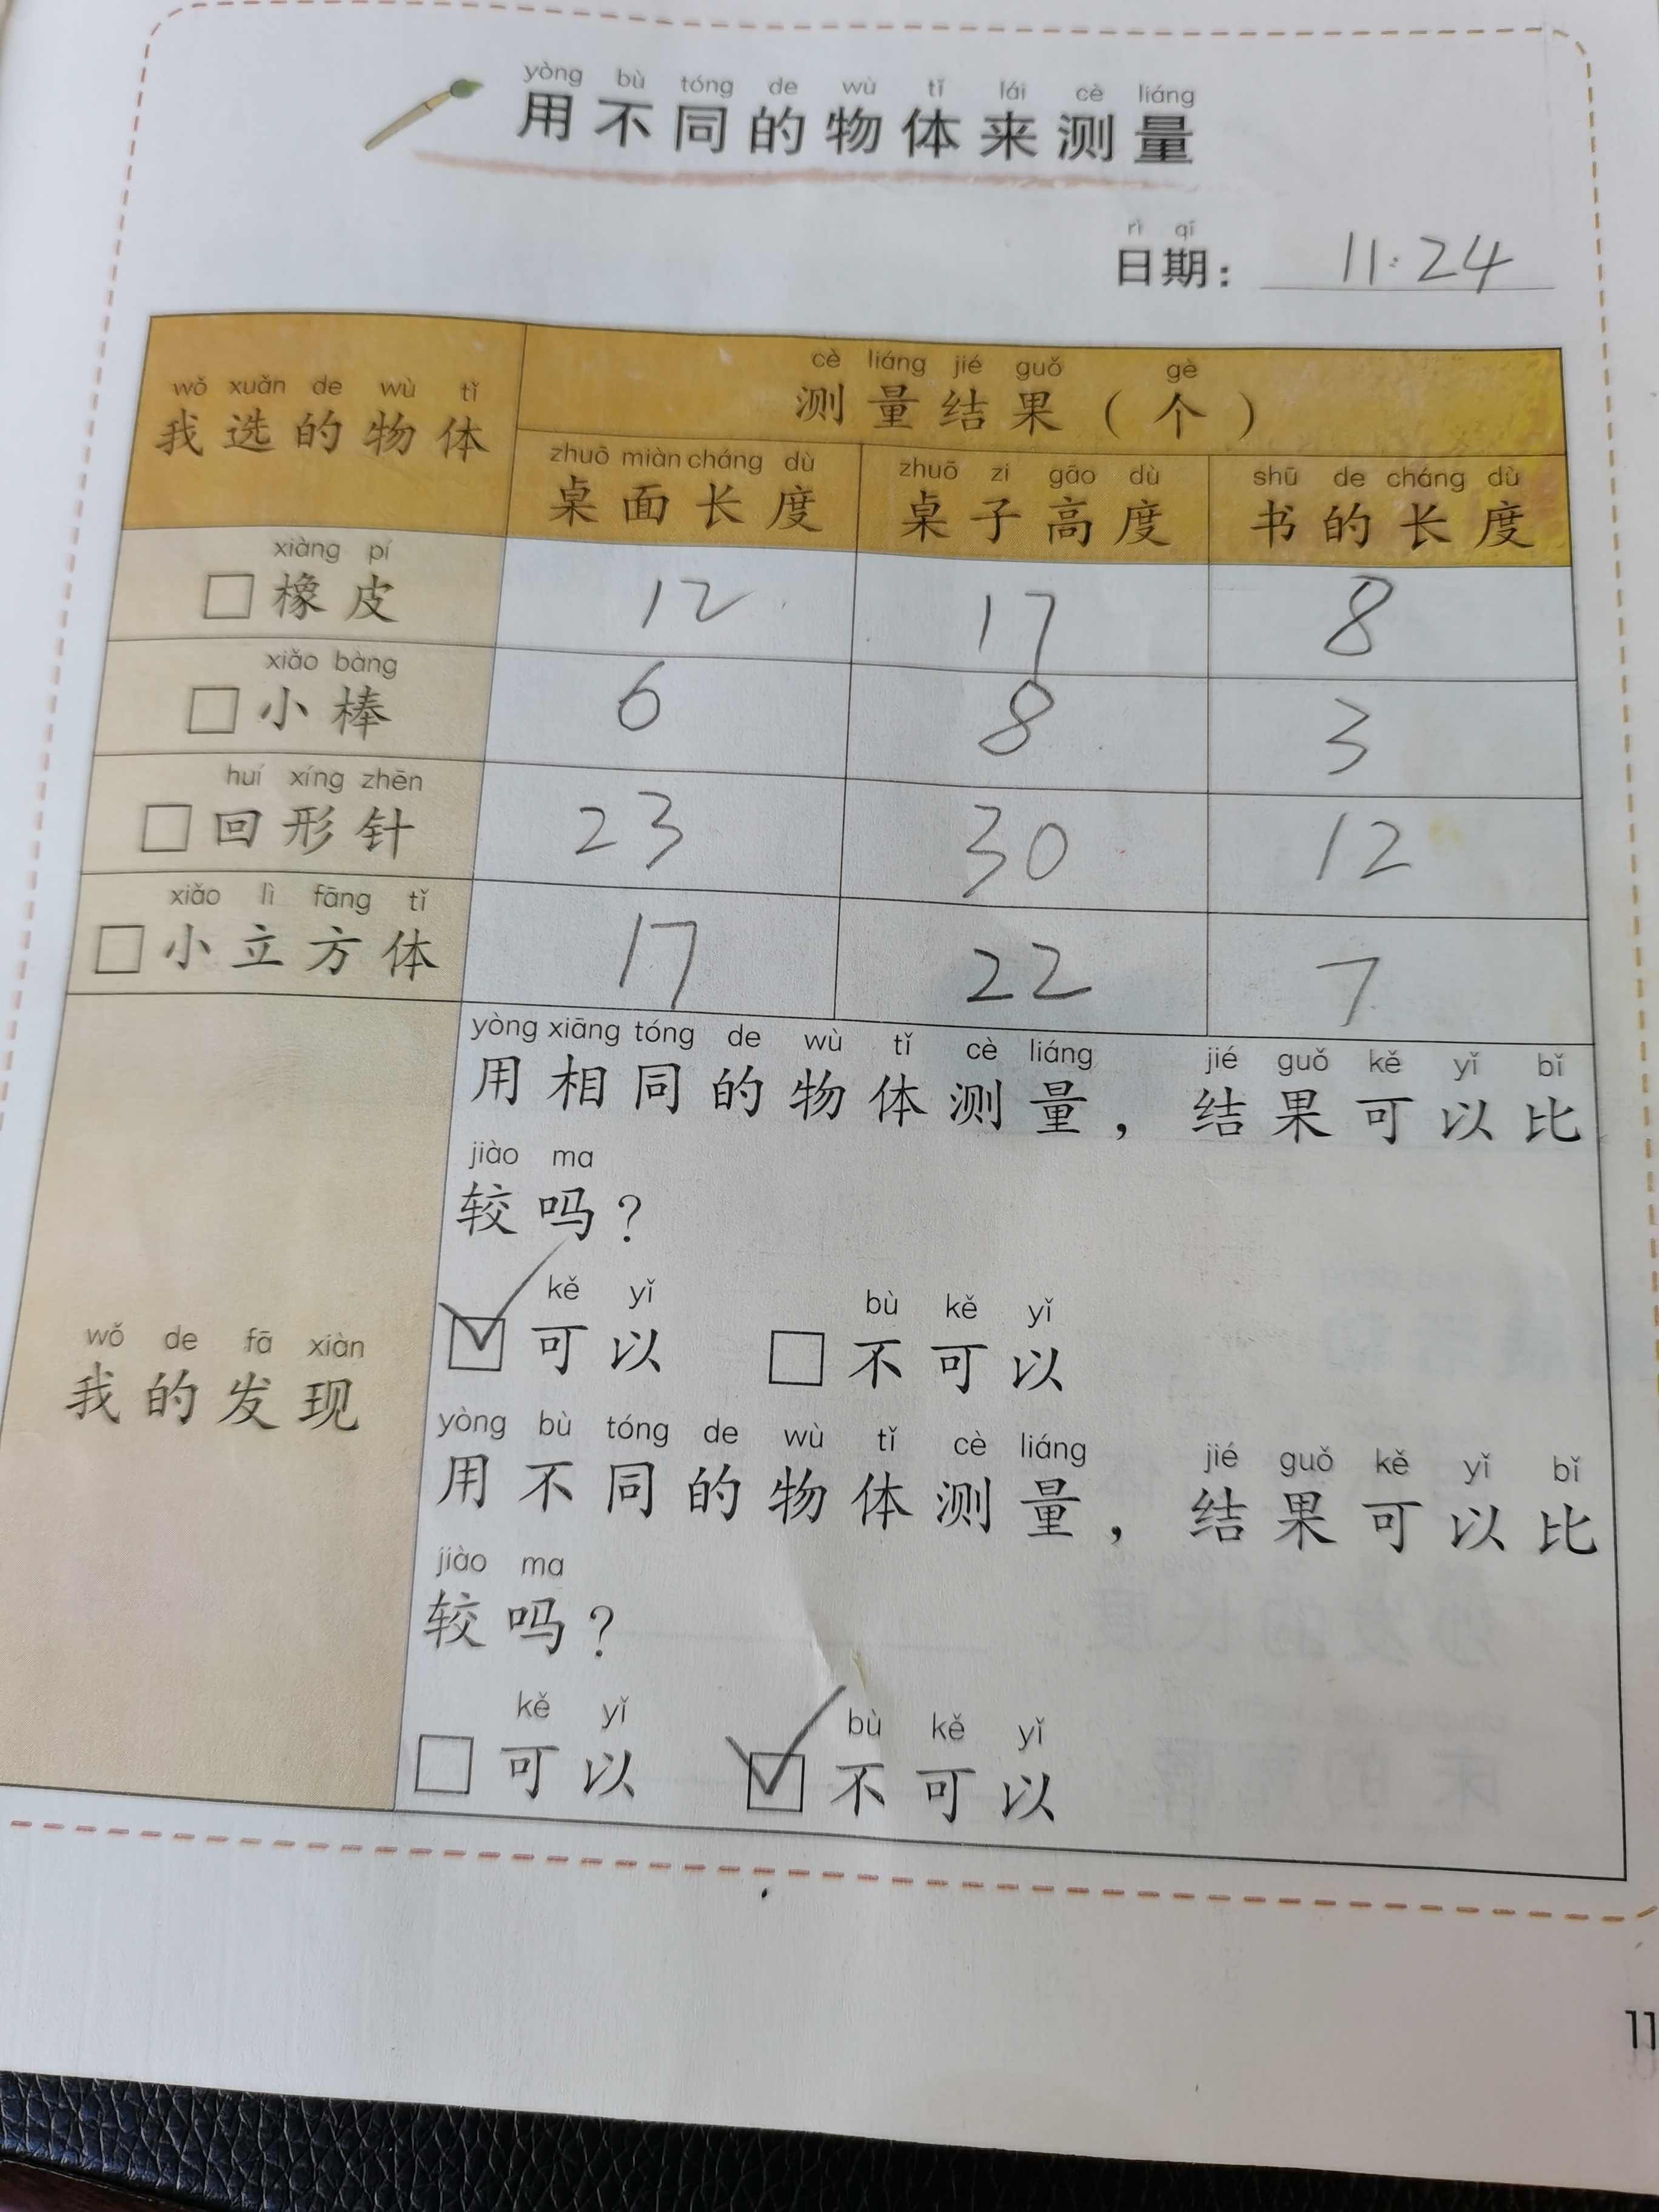 yòng bù tóng de wù tǐ lái cè liáng
用不同的物体来测量
rì qī
日期: 11.24
cè liáng jié guǒ gè
wǒ xuǎn de wù tǐ
测量结果(个)
我选的物体
zhuō miàn cháng dù zhuō zi gāo dù shū de cháng dù
桌面长度 桌子高度 书的长度
xiàng pí
橡皮 12 17 8
xiǎo bàng
小棒 6 8 3
huí xíng zhēn
回形针 23 30 12
xiǎo lì fāng tǐ
小立方体 17 22 7
yòng xiāng tóng de wù tǐ cè liáng jié guǒ kě yǐ bǐ
用相同的物体测量,结果可以比
jiào ma
较吗?
kě yǐ bù kě yǐ
可以 不可以
wǒ de fā xiàn
我的发现
yòng bù tóng de wù tǐ cè liáng jié guǒ kě yǐ bǐ
用不同的物体测量,结果可以比
jiào ma
较吗?
kě yǐ bù kě yǐ
可以 不可以
11